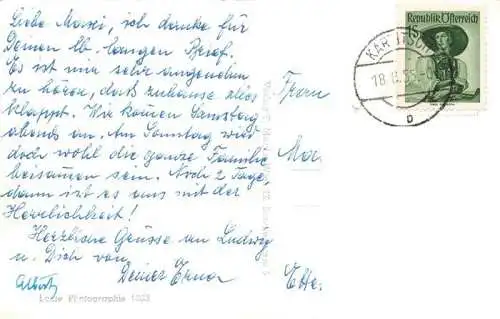 Liebe Mausi, ich danke für
Deinen lb. langen Brief.
Es ist mir sehr angenehm
zu hören, daß zuhause alles
klappt. Wir kommen Samstag
abends an. Am Sonntag wird
doch wohl die ganze Familie
beisamen sein. Noch 2 Tage,
dann ist es aus mit der
Herrlichkeit!
Herzliche Grüsse an Ludwig
u. Dich von
Deiner Erna
Albert
Echte Photographie 1023
Republik Österreich